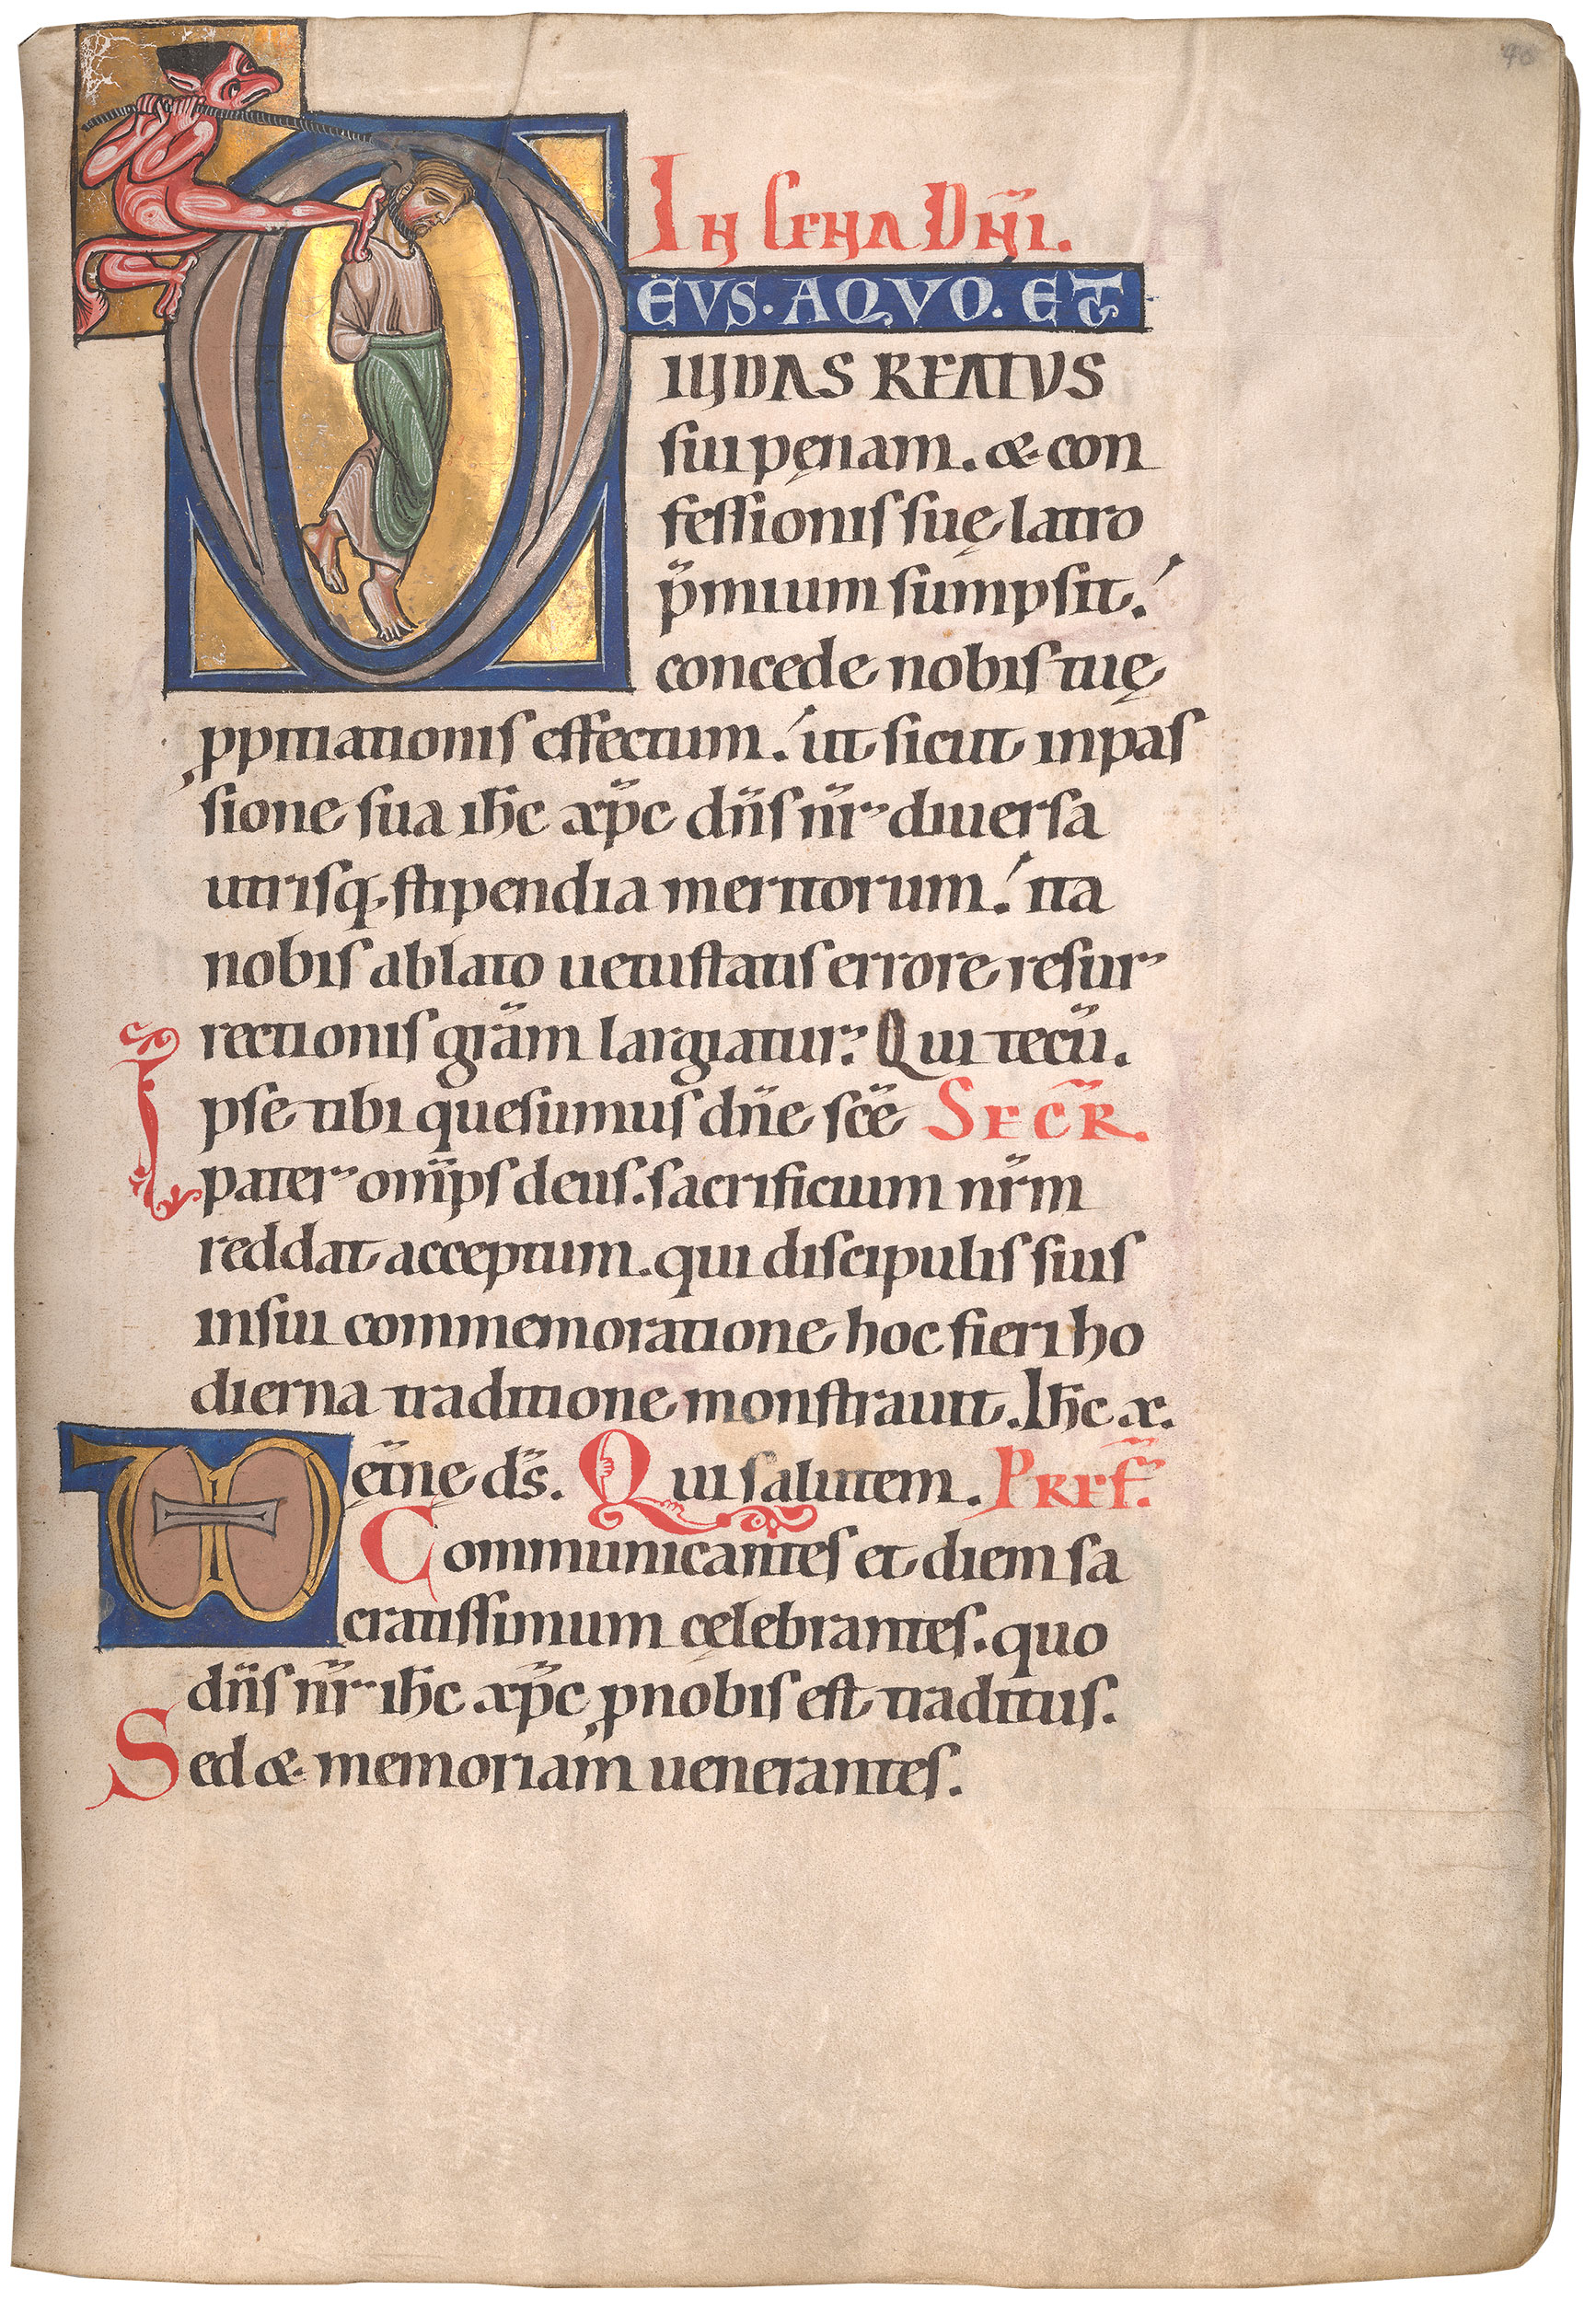 40
IN CENA DÑI.
DEUS. A QUO. ET
IUDAS REATUS
sui pęnam. & con
fessionis suę latro
p̄mium sumpsit.
concede nobis tuę
ꝓpitiationis effectum. ut sicut in pas
sione sua ihc̄ xp̄c dn̄s nr̄ diuersa
utrisq; stipendia meritorum. ita
nobis ablato uetustatis errore resur
rectionis grām largiatur. Qui tecū.
Ipse tibi quesumus dn̄e sc̄e SECR̄.
pater omīps deus. sacrificium nr̄m
reddat acceptum. qui discipulis suis
in sui commemoratione hoc fieri ho
dierna traditione monstrauit. Ihc̄ x.
UD ęt̄nę ds̄. Qui salutem. PREF̄.
Communicantes et diem sa
cratissimum cęlebrantes. quo
dn̄s nr̄ ihc̄ xp̄c ꝓ nobis est traditus.
Sed & memoriam uenerantes.